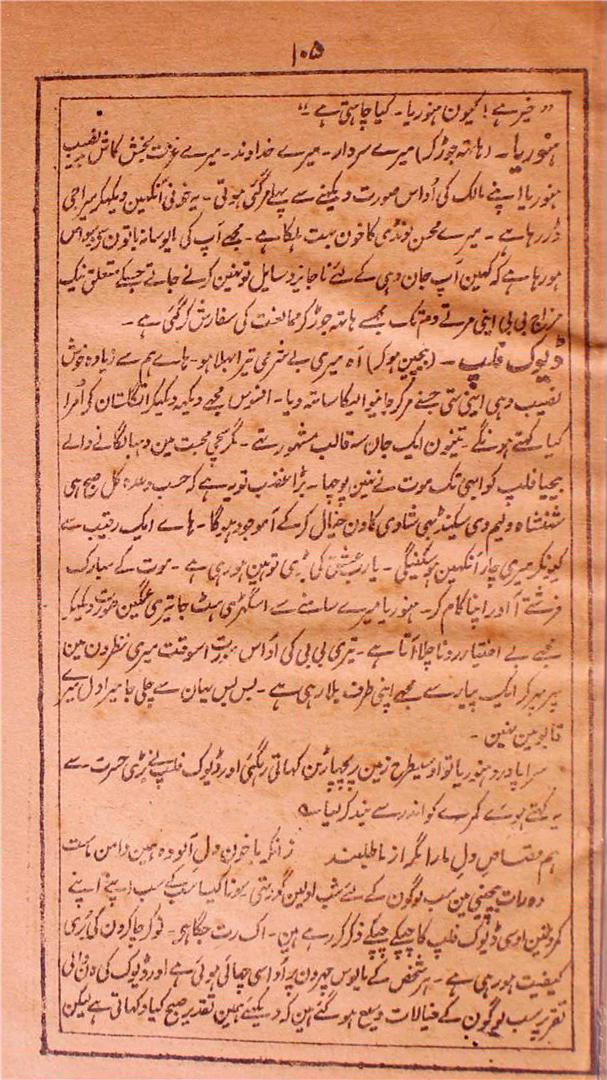 ۱۰۵
"خیر ہے! کیون ہنوریا۔ کیا چاہتی ہے۔"
ہنوریا۔ (ہاتھ جوڑ کر) میرے سردار۔ میرے خداوند۔ میرے عزت بخش کاش نصیب
ہنوریا اپنے مالک کی اُداس صورت دیکھنے سے پہلے مر گئی ہوتی۔ یہ خونی آنکھین دیکھکر میرا جی
ڈر رہا ہے۔ میرے محسن لونڈی کا خون بہت ہلکا ہے۔ مجھے آپ کی مایوسانہ باتون سے وسواس
ہو رہا ہے کہ کہین آپ جان دہی کے لئے ناجایز وسایل تو نہین کرنے جاتے جسکے متعلق نیک
مزاج بی بی اپنی مرتے دم تک مجھے ہاتھ جوڑ کر ممانعت کی سفارش کر گئی ہے۔
ڈیوک فلپ۔ (بیچین ہو کر) آہ میری بے سنری تیرا بھلا ہو۔ ہاے ہم سے زیادہ خوش
نصیب وہی اپنی ستی جسنے مر کر اسکا ساتھ دیا۔ افسوس مجھے دیکھ دیکھکر انگلستان کو اُمرا
کیا کہتے ہونگے۔ تینون ایک جان سہ قالب مشہور تھے۔ مگر سچی محبت مین دہبا لگانے والے
بیحیا فلپ کو ابھی تک موت نے نہین پوچھا۔ بڑا غضب تو یہ ہے کہ حسب وعدہ کل صبح ہی
شہنشاہ ولیم دی سیکنڈ بھی شادی کا دن خیال کر کے آموجود ہوگا۔ ہاے ایک رقیب سے
کیونکر میری چار آنکھین ہو سکینگی۔ یارب عشق کی بڑی توہین ہو رہی ہے۔ موت کے مبارک
فرشتے آ اور اپنا کام کر۔ ہنوریا میرے سامنے سے اسگھڑی ہٹ جا تیری غمگین صورت دیکھکر
مجھے بے اختیار رونا چلا آتا ہے۔ تیری بی بی کی اُداس صورت اسوقت میری نظرون مین
پھر پھر کر ایک پیار سے مجھے اپنی طرف بلا رہی ہے۔ بس بس یہان سے چلی جا میرا دل میرے
قابو مین نہین۔
سراپا درد ہنوریا تو اوسیطرح زمین پر پچھاڑین کھاتی رہگئی اور ڈیوک فلپ نے بڑی حسرت سے
یہ کہتے ہوئے کمرے کو اندر سے بند کر لیا ؎
ہم قصاص دل مارا مگر از ما طلبند زانکہ با خون دل آلودہ ہمین دامن ہست
وہ رات بیچینی مین سب لوگون کے لئے شب اولین گور تھی۔ سونا کیسا سب کے سب اپنے اپنے
کمرونمین اوسی ڈیوک فلپ کا چپکے چپکے ذکر کر رہے ہین۔ اک رت جگا ہو۔ نوکر چاکرون کی بُری
کیفیت ہو رہی ہے۔ ہر شخص کے مایوس چہرون پر اُداسی چھائی ہوئی ہے اور ڈیوک کی
تقریر سب لوگون کے خیالات وسیع ہو گئے ہین کہ دیکھئے ہمین تقدیر صبح کیا دکھاتی ہے لیکن